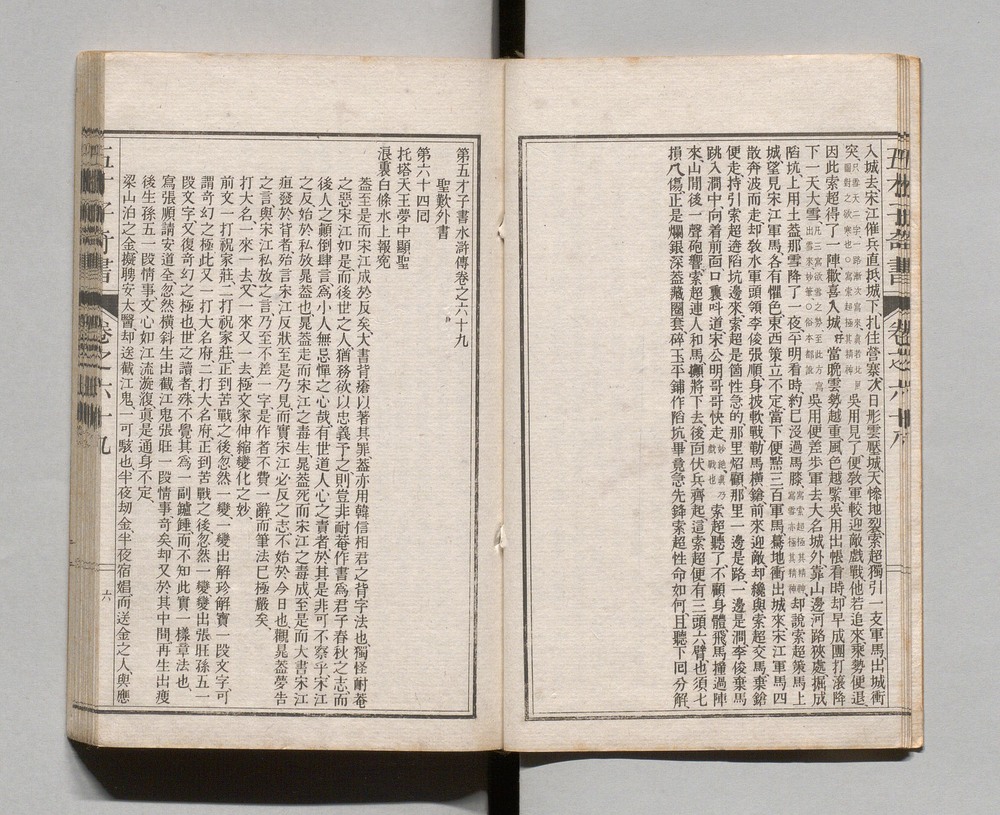 入城去宋江催兵直抵城下扎住營寨次日彤雲壓城天慘地裂索超獨引一支軍馬出城衝
突吳用見了便教軍較迎敵戲戰他若追來乘勢便退
因此索超得了一陣歡喜入城好當晚雲勢越重風色越緊吳用出帳看時却早成團打滾降
下一天大雪吳用便差步軍去大名城外靠山邊河路狹處掘成
陷坑上用土蓋那雪降了一夜平明看時約已沒過馬膝却說索超策馬上
城望見宋江軍馬各有懼色東西策立不定當下便點三百軍馬驀地衝出城來宋江軍馬四
散奔波而走却教水軍頭領李俊張順身披軟戰勒馬橫鎗前來迎敵却纔與索超交馬棄鎗
便走特引索超遶陷坑邊來索超是箇性急的那里炤顧那里一邊是路一邊是澗李俊棄馬
跳入澗中向着前面口裏呌道宋公明哥哥快走索超聽了不顧身體飛馬撞過陣
來山背後一聲砲響索超連人和馬攧將下去後面伏兵齊起這索超便有三頭六臂也須七
損八傷正是爛銀深蓋藏圈套碎玉平鋪作陷坑畢竟急先鋒索超性命如何且聽下回分解
第五才子書水滸傳卷之六十九
聖歎外書
第六十四回
托塔天王夢中顯聖
浪裏白條水上報冤
蓋至是而宋江成於反矣大書背瘡以著其罪蓋亦用韓信相君之背字法也獨怪耐菴
之惡宋江如是而後世之人猶務欲以忠義予之則豈非耐菴作書爲君子春秋之志而
後人之顛倒肆言爲小人無忌憚之心哉有世道人心之責者於其是非可不察乎宋江
之反始於私放晁蓋也晁蓋走而宋江之毒生晁蓋死而宋江之毒成至是而大書宋江
疽發於背者殆言宋江反狀至是乃見而實宋江必反之志不始於今日也觀晁蓋夢告
之言與宋江私放之言乃至不差一字是作者不費一辭而筆法已極嚴矣
打大名一來一去又一來又一去極文家伸縮變化之妙
前文一打祝家莊二打祝家莊正到苦戰之後忽然一變變出解珍解寶一段文字可
謂奇幻之極此又一打大名府二打大名府正到苦戰之後忽然一變變出張旺孫五一
段文字又復奇幻之極也世之讀者殊不覺其爲一副鑪錘而不知此實一樣章法也
寫張順請安道全忽然橫斜生出截江鬼張旺一段情事奇矣却又於其中間再生出瘦
後生孫五一段情事文心如江流漩澓眞是通身不定
梁山泊之金擬聘安太醫却送截江鬼一可駭也半夜刼金半夜宿娼而送金之人與應
卷之六十九
六